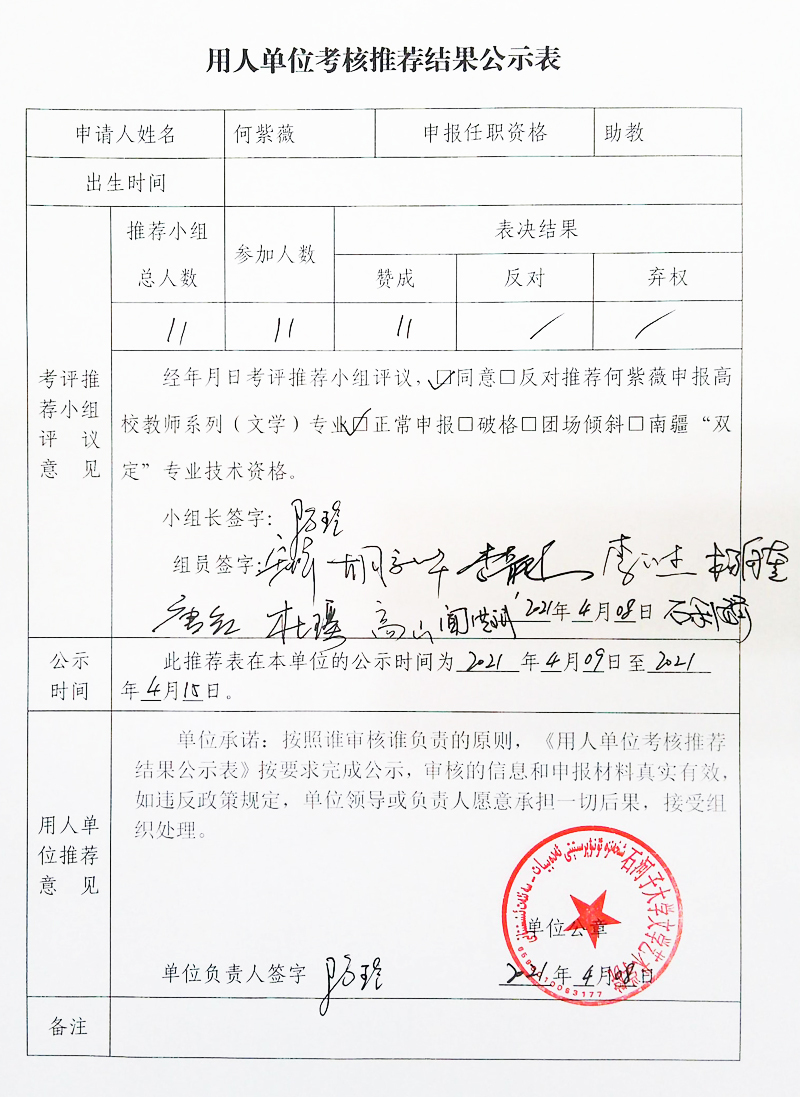 用人单位考核推荐结果公示表
申请人姓名 何紫薇 申报任职资格 助教
出生时间
推荐小组总人数 参加人数 表决结果
赞成 反对 弃权
11 11 11 / /
考评推荐小组评议意见
经年月日考评推荐小组评议，☑同意□反对推荐何紫薇申报高
校教师系列（文学）专业☑正常申报□破格□团场倾斜□南疆“双
定”专业技术资格。
小组长签字：
组员签字：
李正杰
唐红 杜瑾 高山 2021年4月08日
公示时间
此推荐表在本单位的公示时间为 2021 年4月09日至 2021
年4月15日。
用人单位推荐意见
单位承诺：按照谁审核谁负责的原则，《用人单位考核推荐
结果公示表》按要求完成公示，审核的信息和申报材料真实有效，
如违反政策规定，单位领导或负责人愿意承担一切后果，接受组
织处理。
石河子大学文学艺术学院
单位公章
单位负责人签字
2021年4月08日
备注